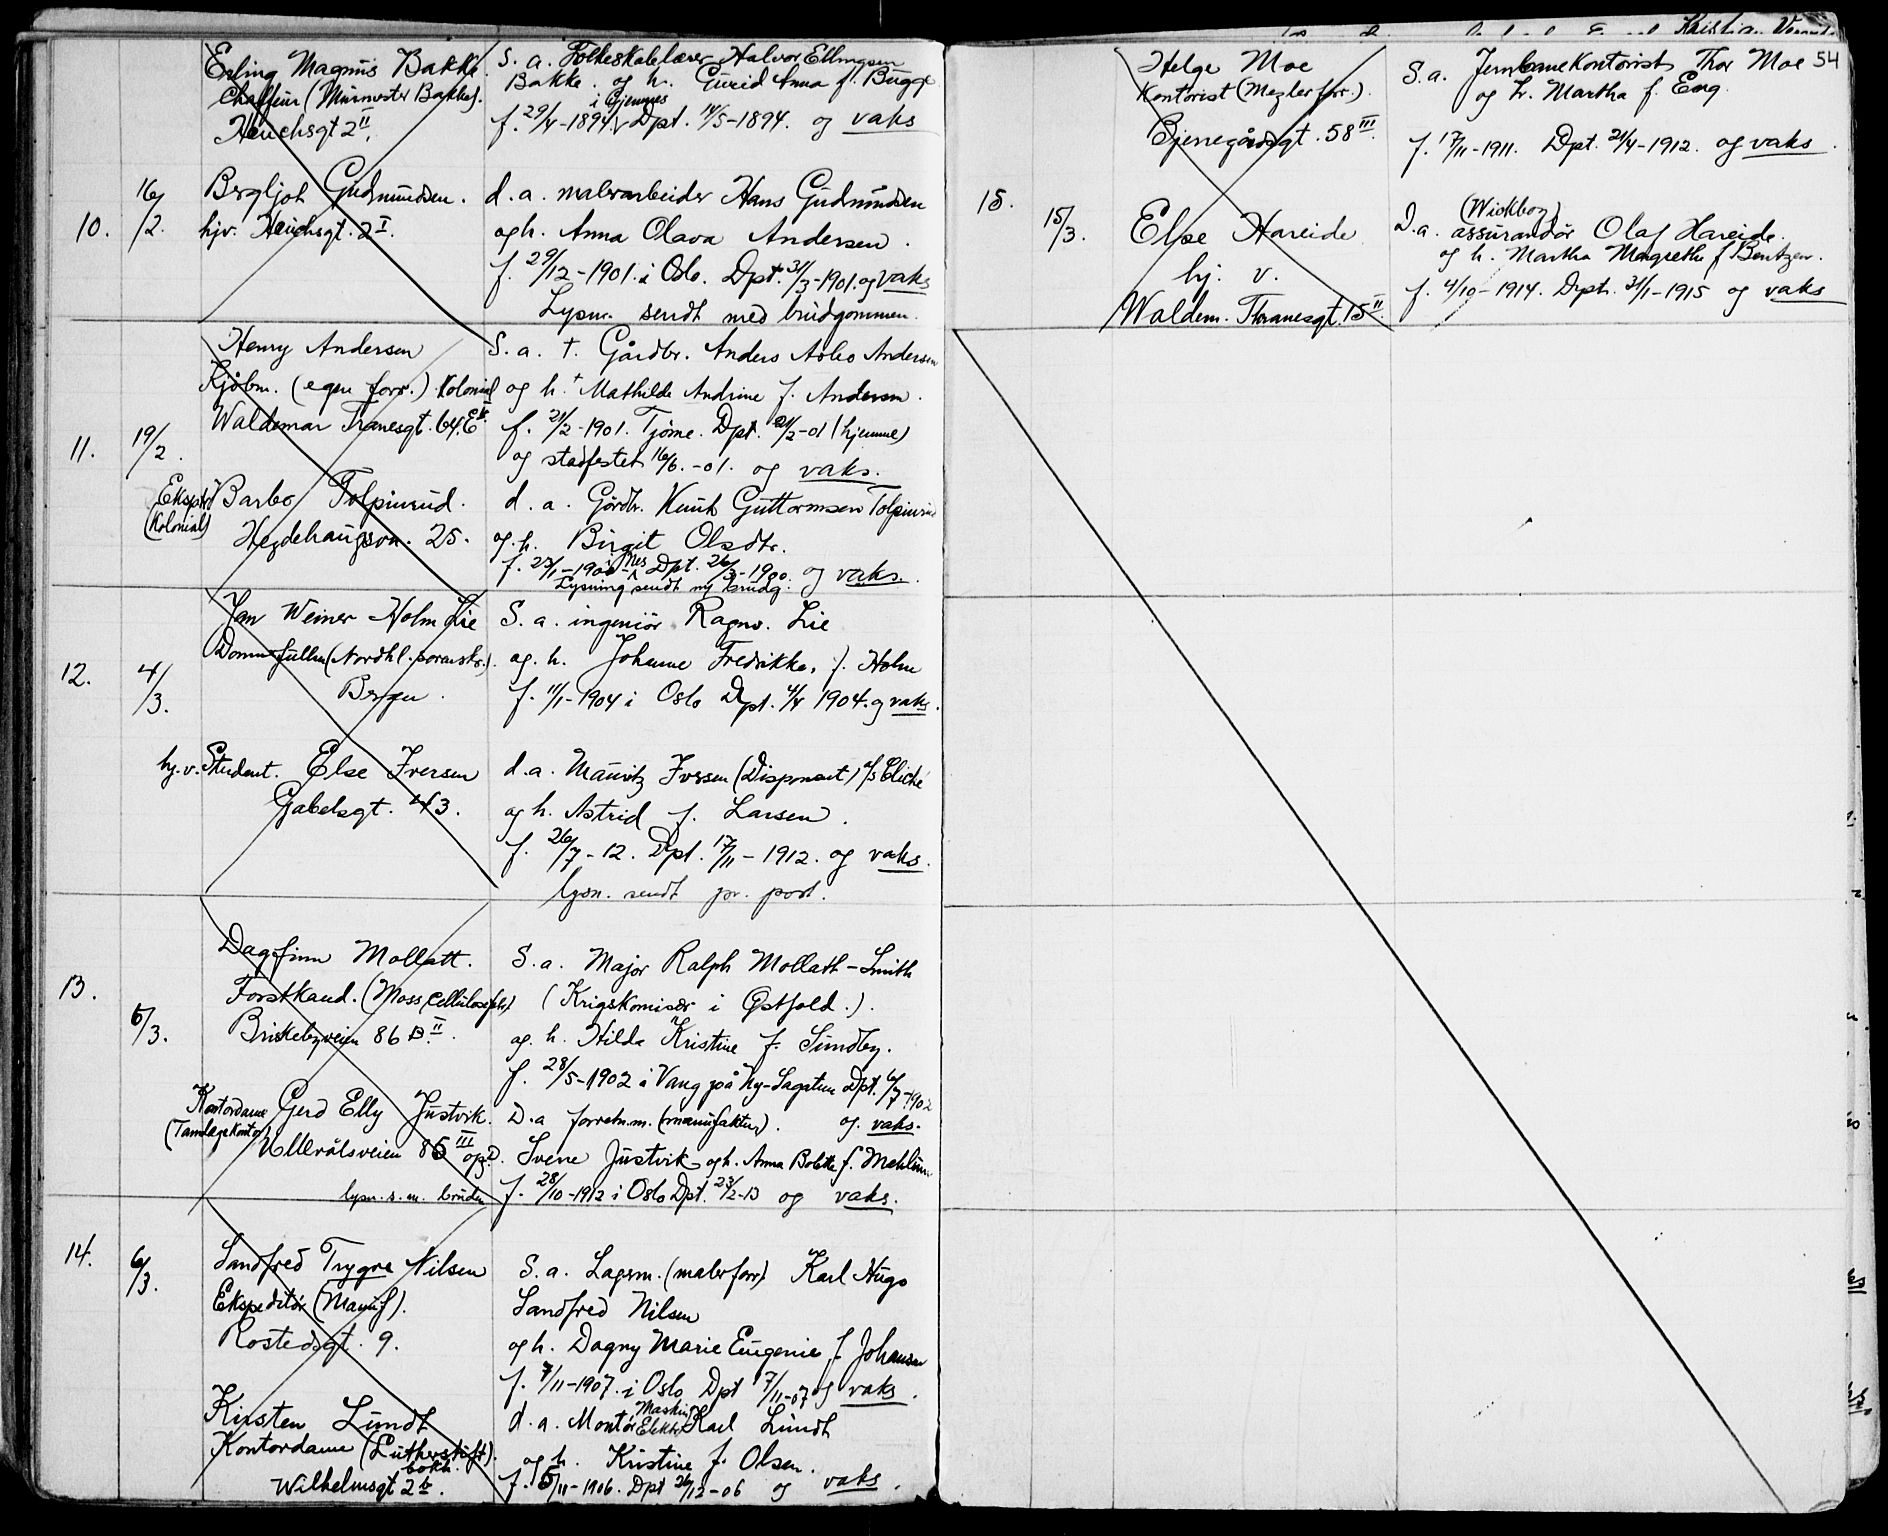 Erling Magnus Bakke.
Chaffeur (Murmester Bakke).
Heuchsgt 2 II.
S. a. Folkeskolelærer Halvor Ellingsen
Bakke og h. Gurid Anna f. Bugge
f. 29/4-1894 i Gjemnes Dpt. 14/5-1894. og vaks
10. 16/2.
Bergljot Gudmundsen.
hjv. Heuchsgt. 2 I.
d. a. malerarbeider Hans Gudmundsen
og h. Anna Olava Andersen.
f. 29/12-1901 i Oslo. Dpt. 31/3-1901. og vaks
Lysn. sendt med brudgommen.
11. 19/2.
Henry Andersen
Kjøbm. (egen forr.) Kolonial
Waldemar Tranesgt. 64.E
S. a. †. Gårdbr. Anders Asbo Andersen
og h. † Mathilde Andrine f. Andersen.
f. 21/2-1901. Tjöme. Dpt. 24/2-01 (hjemme)
og stadfestet 16/6.-01. og vaks.
Eksptr. (Kolonial)
Barbo Tolpinrud.
Hegdehaugsvn. 25.
d. a. Gårdbr. Knut Guttormsen Tolpinrud
og. h. Birgit Olsdtr.
f. 23/1-1900 i Nes Dpt. 26/3-1900. og vaks.
Lysning sendt m/ brudg.
12. 4/3.
Jan Weiner Holm Lie
Dommerfullm (Nordhl. sorenskr.).
Bergen.
S. a. ingeniör Ragnv. Lie
og. h. Johanne Fredrikke, f. Holm
f. 11/1-1904 i Oslo Dpt. 4/4 1904. og vaks.
hj. v. Student. Else Iversen
Gabelsgt. 43.
d. a. Mauritz Iversen (Disponent) A/S Cliché
og h. Astrid f. Larsen.
f. 26/7-12. Dpt. 17/11-1912. og vaks.
lysn. sendt pr. post.
13. 6/3.
Dagfinn Mollatt.
Forstkand. (Moss cellulosefabr.)
Briskebyveien 86 B. II.
S. a. Major Ralph Mollatt-Smith
(Krigskomisær i Østfold.).
og. h. Hilda Kristine f. Sundby.
f. 28/5-1902 i Vang på Ny-Sagatun Dpt. 6/7-1902
og. vaks.
Kontordame (Tandlægekontor)
Gerd Elly Justvik.
Ullevålsveien 85 III opg D.
lysn. s. m. bruden
D. a forretn.m. (manufaktur).
Svene Justvik og h. Anna Bolette f. Mehlum
f. 28/10-1912 i Oslo Dpt. 23/2-13 og vaks.
14. 6/3.
Sandfred Trygve Nilsen
Ekspeditör (Manuf).
Rostedsgt. 9.
S. a. Lagerm. (malerforr) Karl Hugo
Sandfred Nilsen
og h. Dagny Marie Eugenie f. Johansen
f. 7/11-1907. i Oslo Dpt 7/11-07 og vaks.
Kirsten Lundt
Kontordame (Lutherstift. bokh.).
Wilhelmsgt 2
d. a. Montör Maskin Elektr. Karl Lundt
og h. Kristine f. Olsen.
f. 5/11-1906. Dpt 26/12-06 og vaks.
54
Helge Moe
Kontorist (Meglerforr.).
Bjerregårdsgt. 58 III.
S. a. Jernbanekontorist Thor Moe
og h. Martha f. Eng.
f. 17/11-1911. Dpt. 21/4-1912. og vaks.
15. 15/3.
Else Hareide
hj. v.
Waldem. Thranesgt. 15 II
D. a. assurandör Olaf Hareide.
og h. Martha Magrethe f Bentzen.
f. 4/10-1914. Dpt. 31/1-1915 og vaks